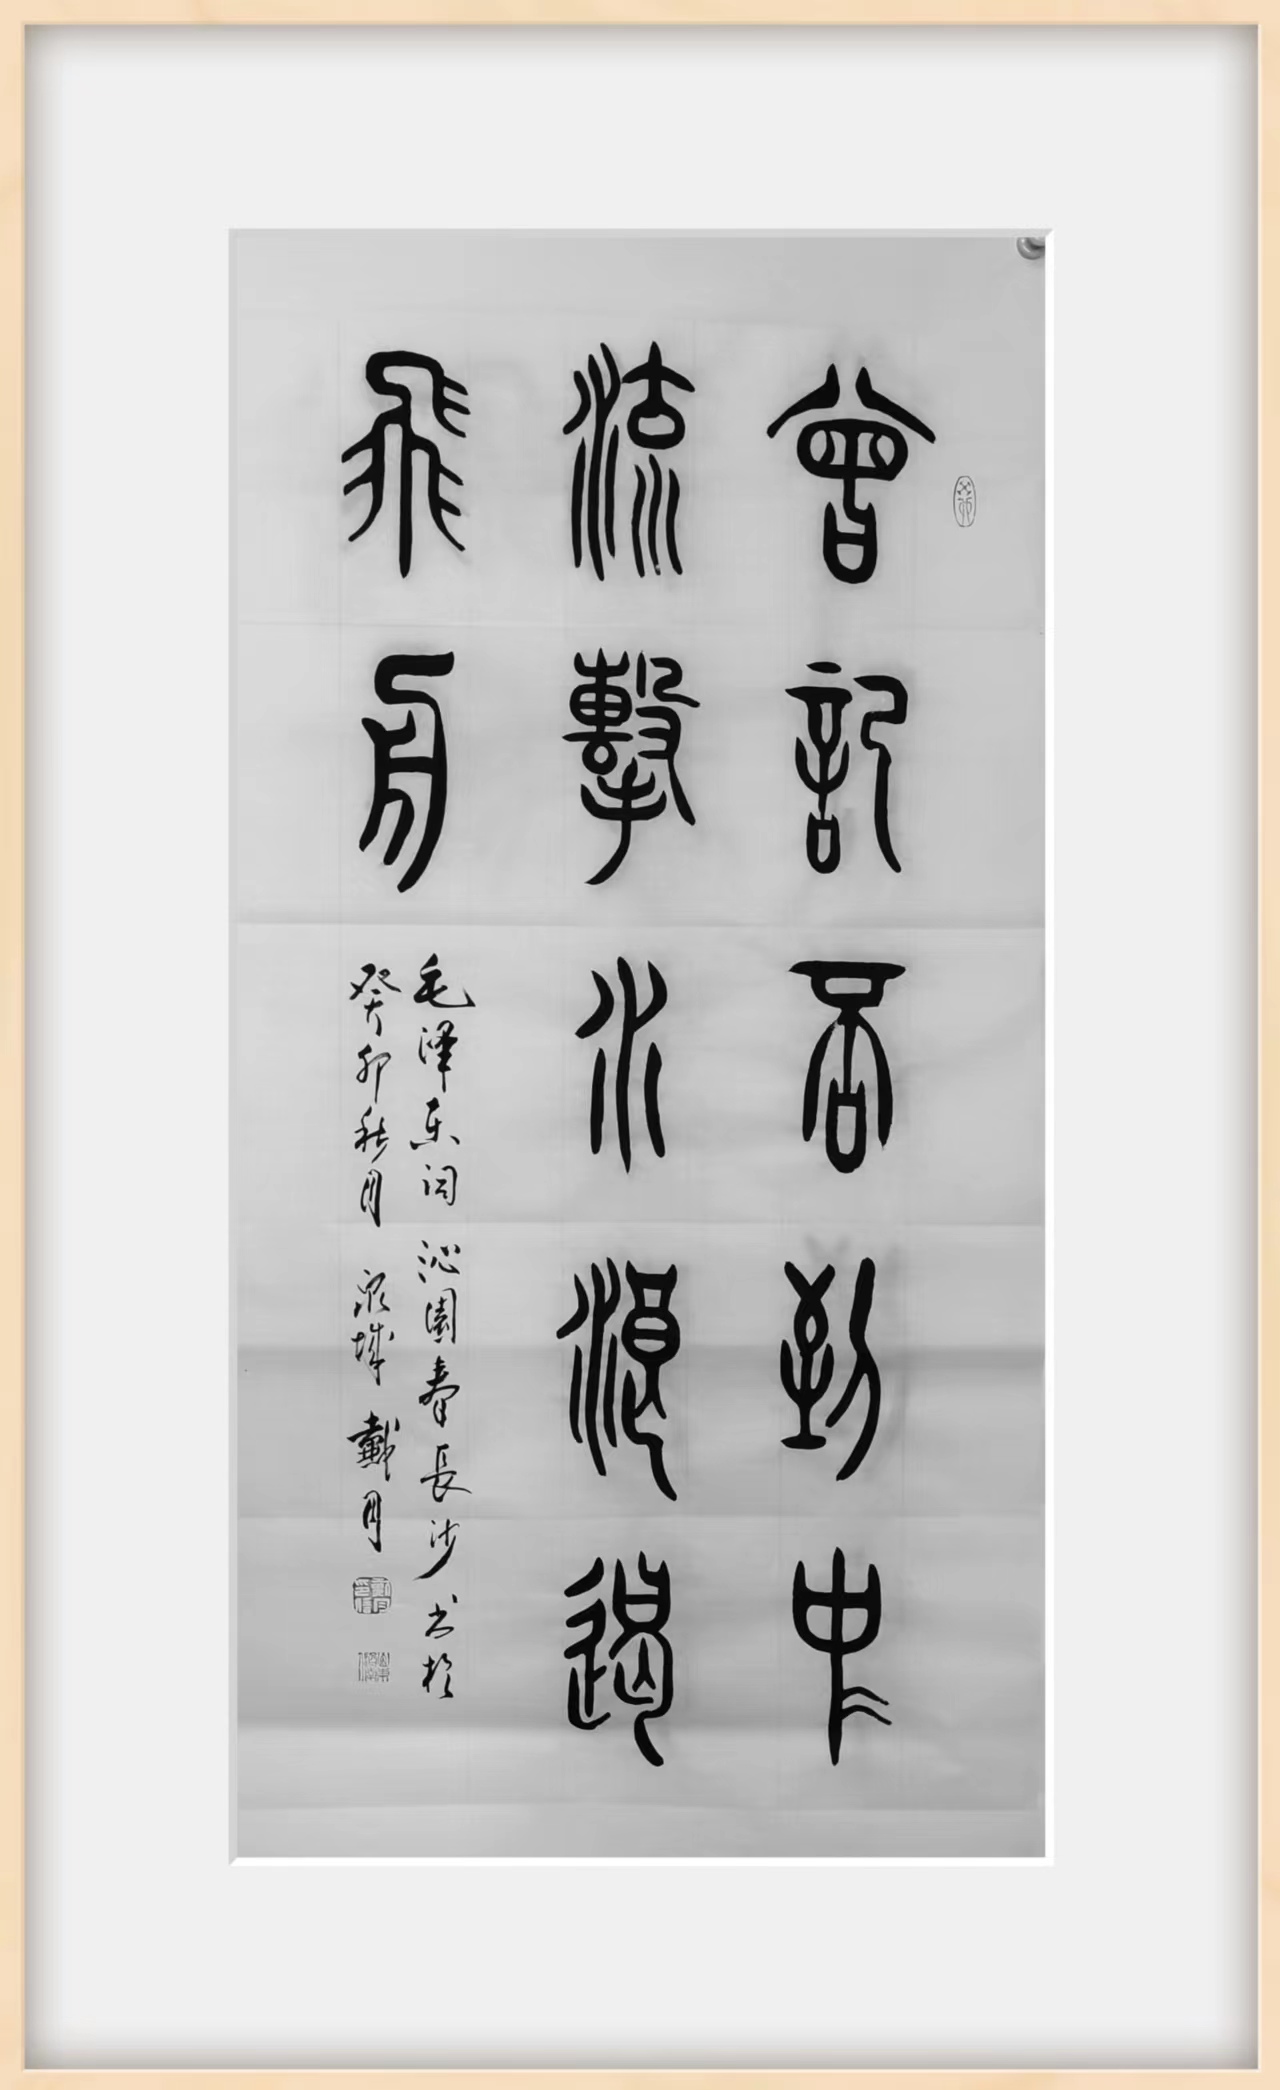 曾記否到中
流擊水浪遏
飛舟
毛泽东词沁園春長沙书於
癸卯秋月 泉城 戴月